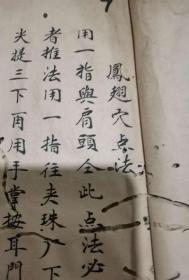 鳳翅穴点法
用一指與肩頭仝此点法必
者推法用一指往夹珠广下
尖提三下再用手掌按耳門